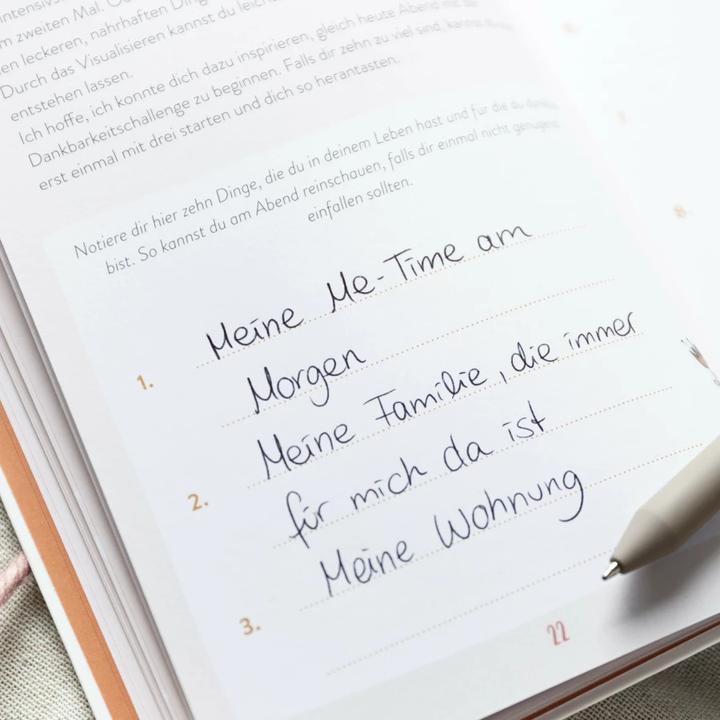 m zweiten Mal.
en leckeren, nahrhaften
Durch das Visualisieren kannst du
entstehen lassen.
Ich hoffe, ich konnte dich dazu inspirieren, gleich heute Abend mit
Dankbarkeitschallenge zu beginnen. Falls dir zehn zu viel sind,
erst einmal mit drei starten und dich so herantasten.
Notiere dir hier zehn Dinge, die du in deinem Leben hast und für die du
bist. So kannst du am Abend reinschauen, falls dir einmal nicht genügend
einfallen sollten.
1. Meine Me-Time am
Morgen
2. Meine Familie, die immer
für mich da ist
3. Meine Wohnung
22